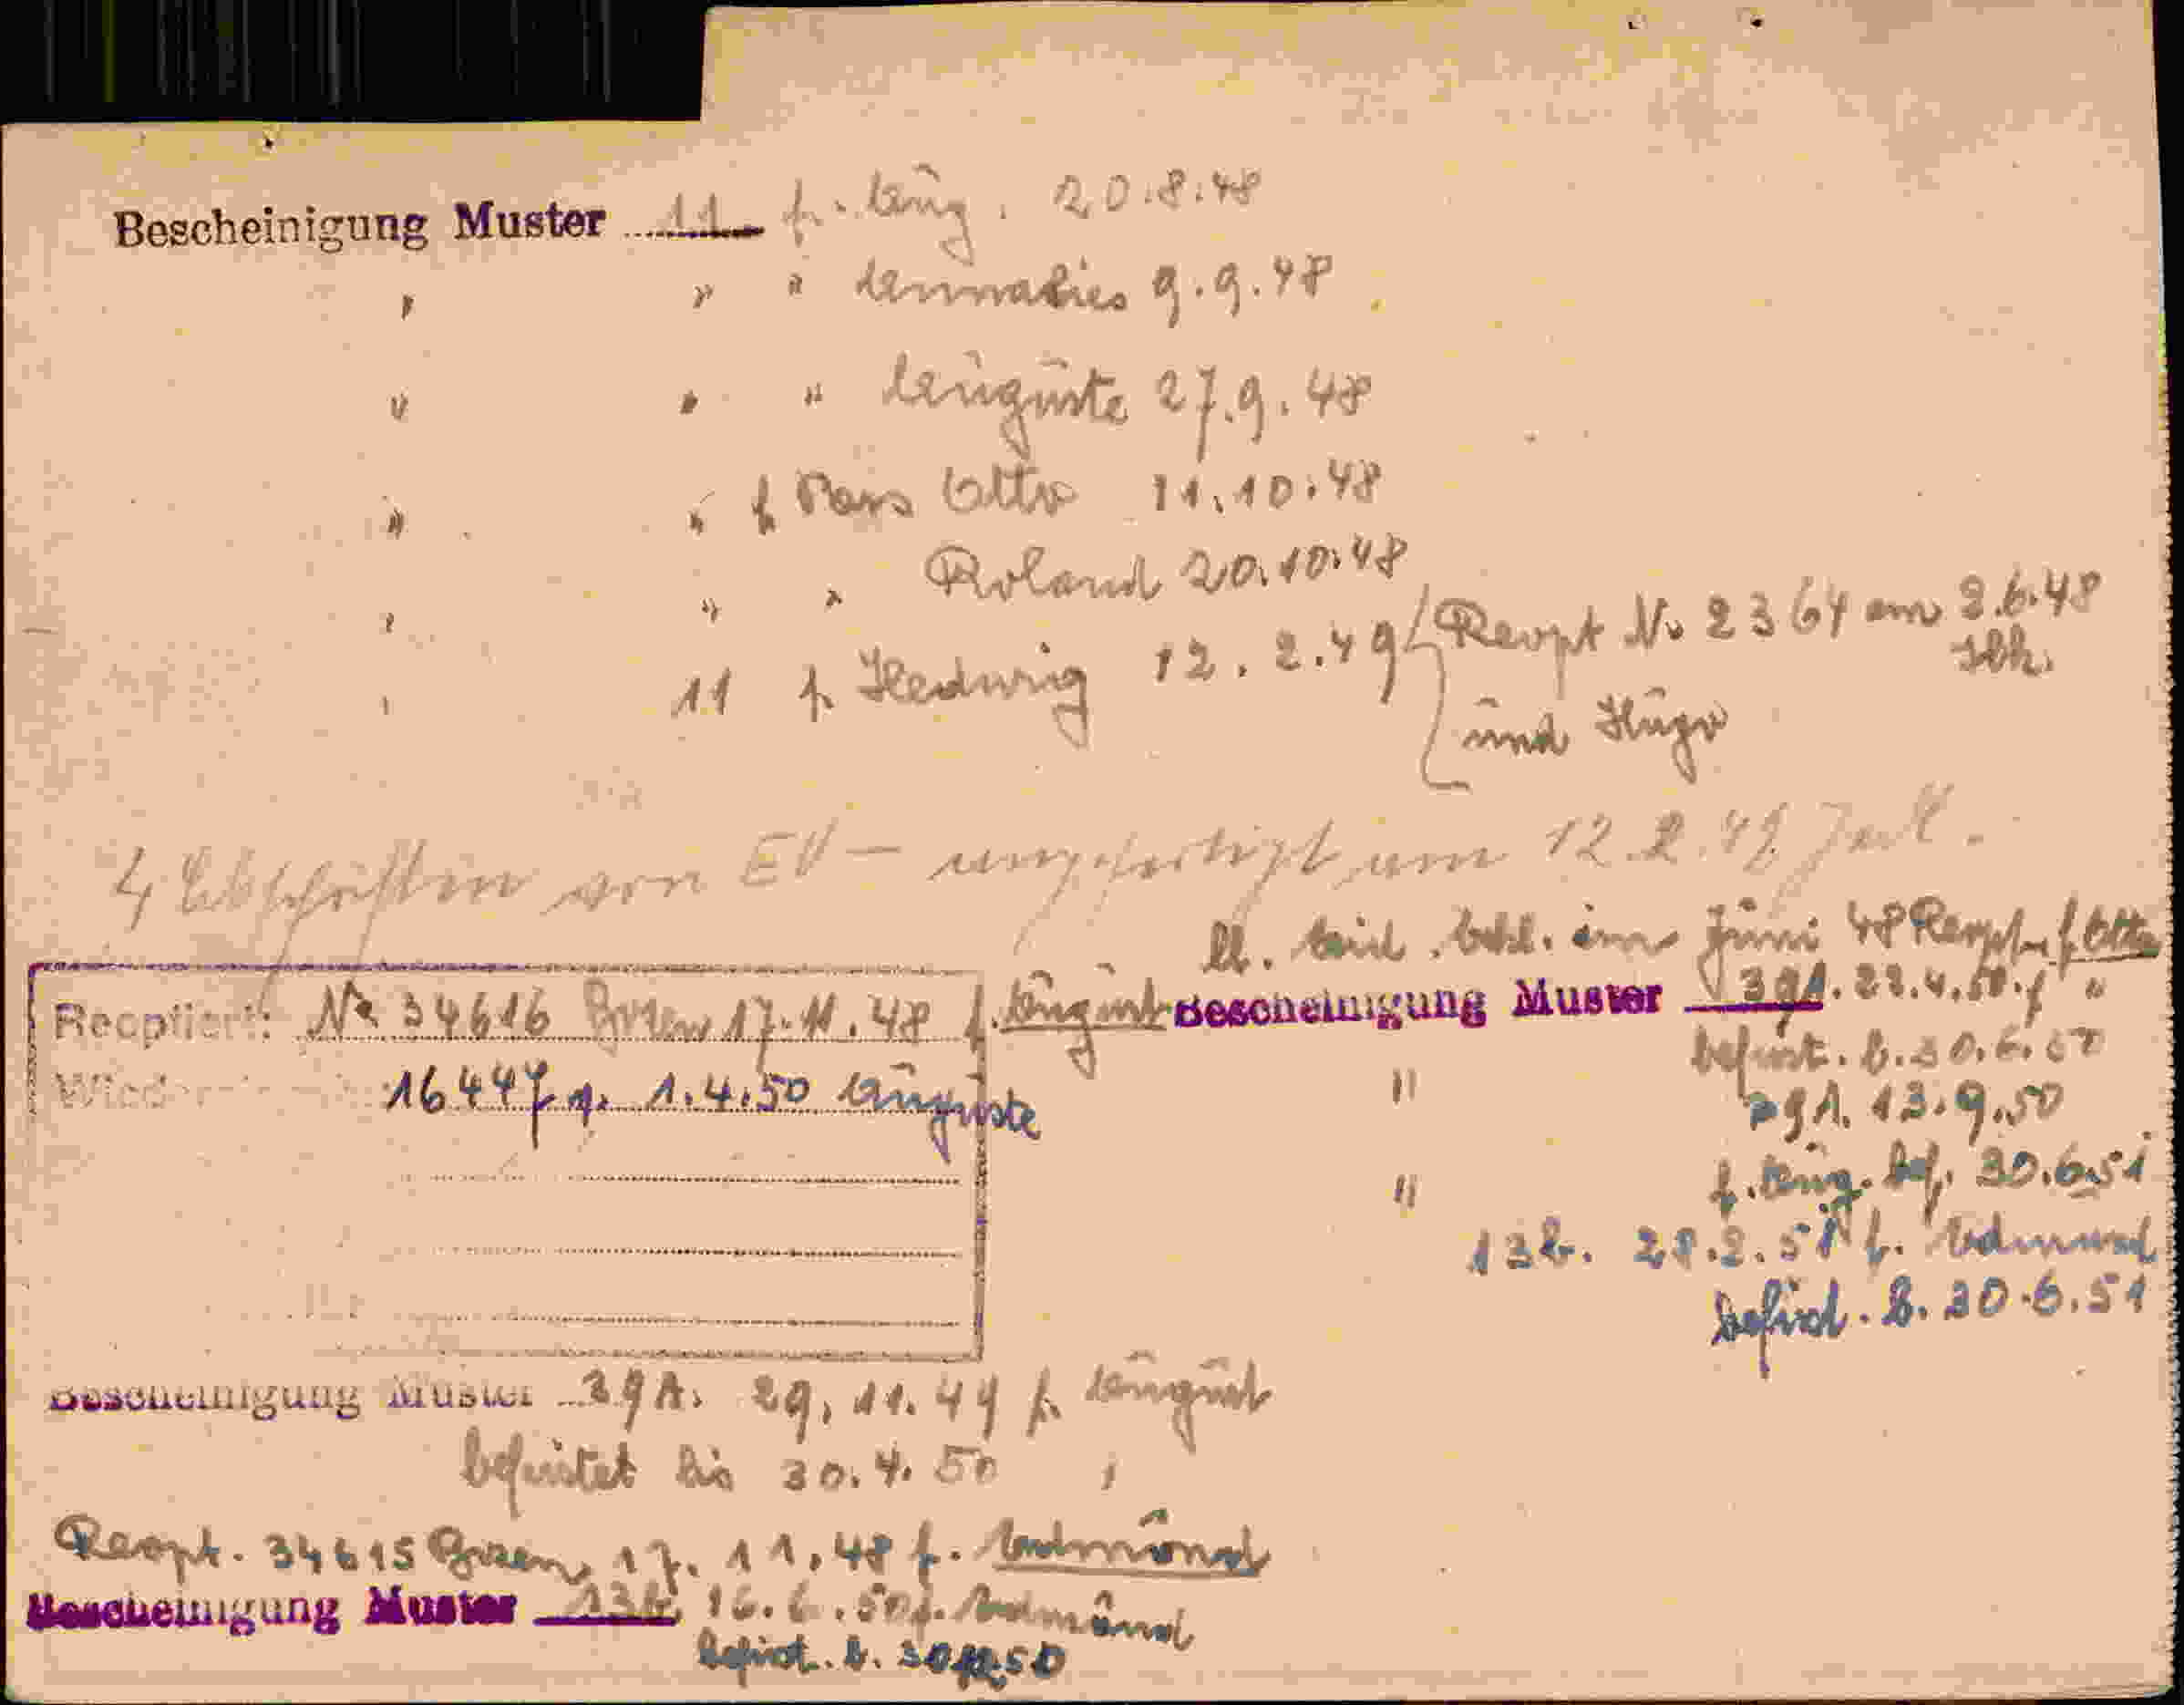 Bescheinigung Muster 11 f. Aug. 20.8.48
" " " Annalies 9.9.48
" " " Auguste 27.9.48
" " f Otto 11.10.48
" " " Roland 20.10.48
" 11 f. Hedwig 12.2.49 { Reopt No 2364 am 2.6.48
und Hugo
4 Abschriften von EV – angefertigt am 12.2.49
lt. Juni 48 f. Otto
Reoptiert: No 34616 Bozen 17.11.48 f. August
Bescheinigung Muster 39A. 22.4.50. f "
befrist. b. 30.6.50
16447 1.4.50 Auguste
" 39A. 13.9.50
" f. Aug. bef. 30.6.51
13b. 28.2.51 f. Edmund
befrist. b. 30.6.51
Bescheinigung Muster 39A. 29.11.49 f. August
befristet bis 30.4.50
Reopt. 34615 Bozen 17.11.48 f. Edmund
Bescheinigung Muster 13b. 16.6.50 f. Edmund
befrist. b. 50